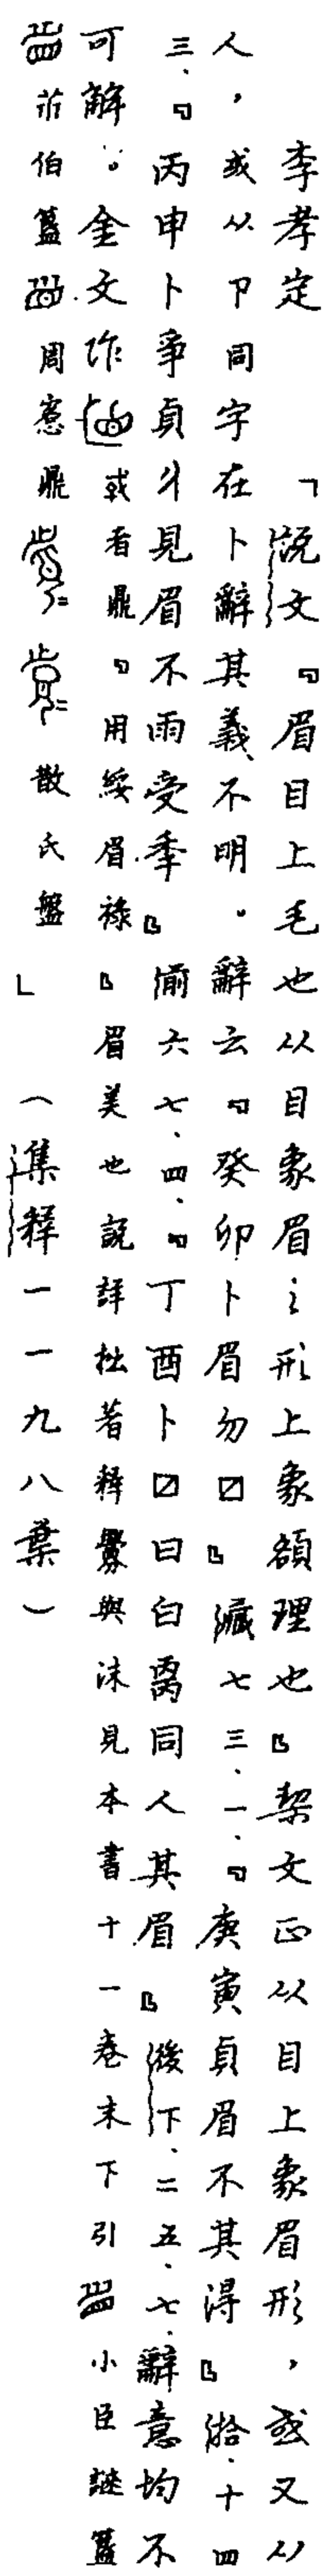 李孝定 「說文『眉目上毛也从目象眉之形上象頟理也』契文正从目上象眉形，或又从
人，或从卩同字在卜辭其義不明。辭云『癸卯卜眉勿☐』藏七三·一·『庚寅貞眉不其得』拾·十四
三·『丙申卜爭貞 見眉不雨受季』前六·七·四·『丁酉卜☐曰白 同人其眉』後下·二五·七·辭意均不
可解。金文作 或者鼎『用綏眉祿』眉美也說詳拙著釋釁與沬見本書十一卷末下引 小臣謎簋
 伯簋 周窓鼎 散氏盤」（集釋一一九八葉）